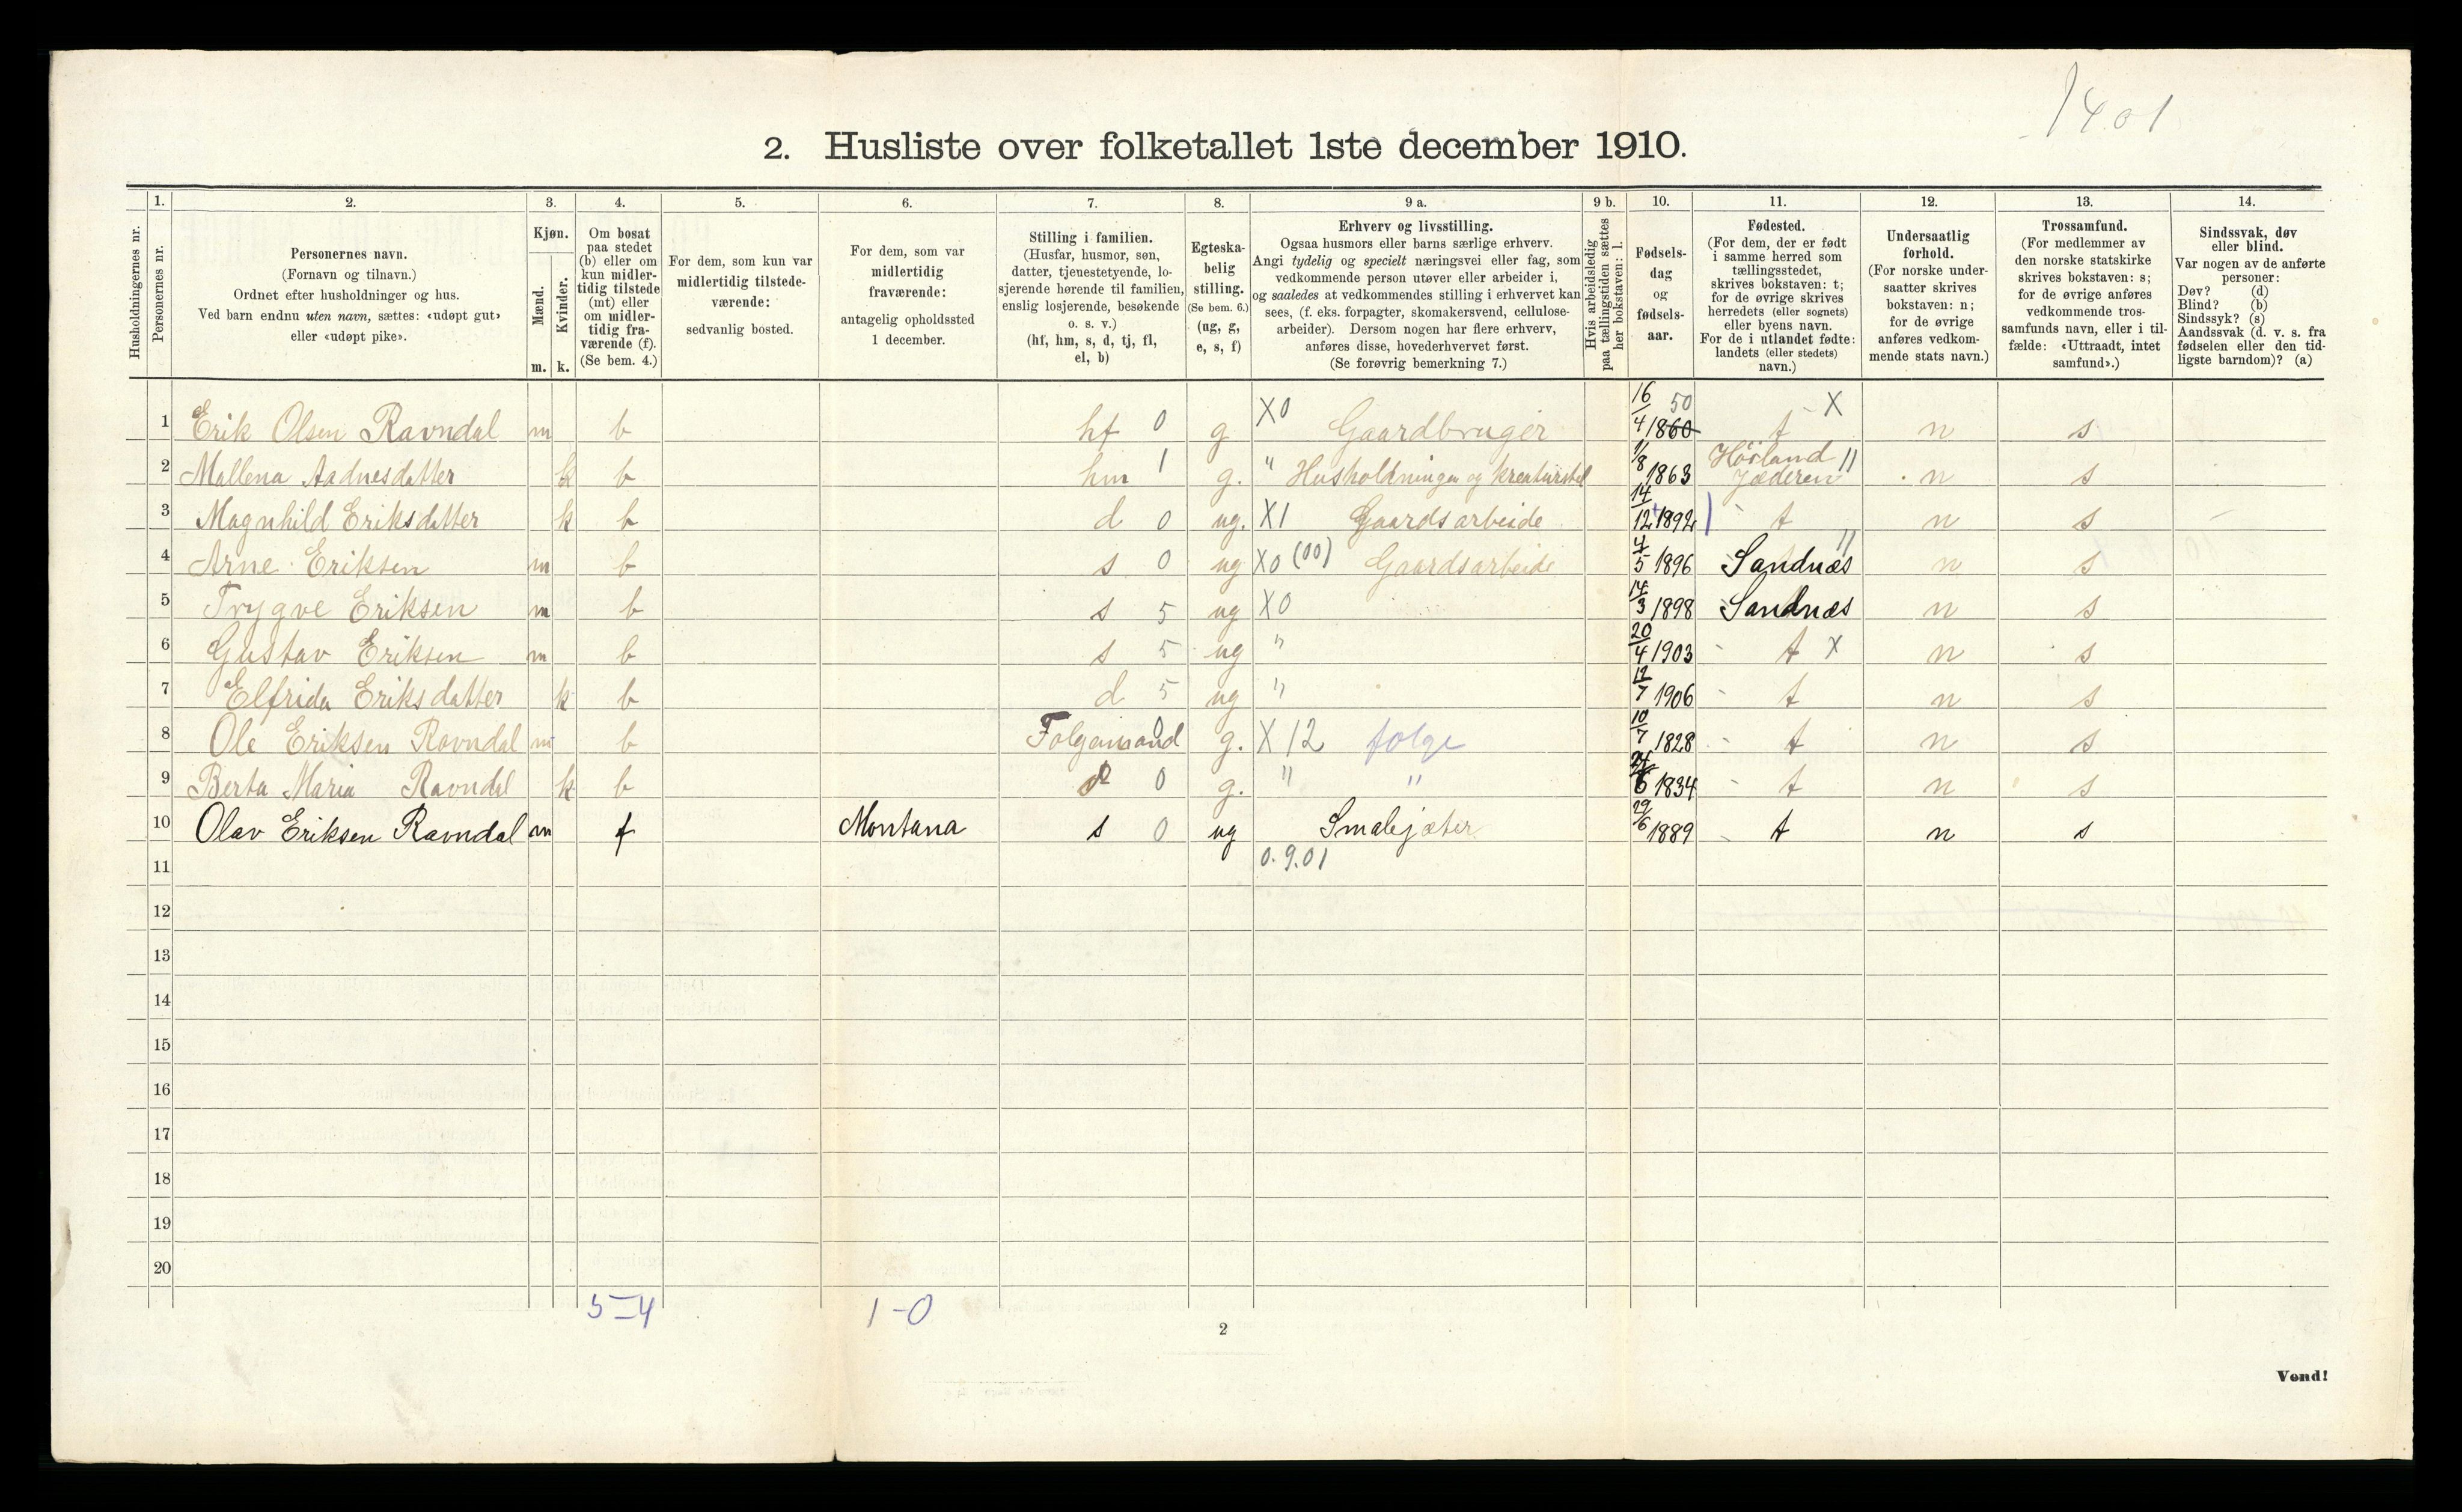 1401
2. Husliste over folketallet 1ste december 1910.
Husholdningernes nr.
1. Personernes nr.
2. Personernes navn. (Fornavn og tilnavn.) Ordnet efter husholdninger og hus. Ved barn endnu uten navn, sættes: «udøpt gut» eller «udøpt pike».
3. Kjøn. Mænd. m. Kvinder. k.
4. Om bosat paa stedet (b) eller om kun midlertidig tilstede (mt) eller om midlertidig fraværende (f). (Se bem. 4.)
5. For dem, som kun var midlertidig tilstedeværende: sedvanlig bosted.
6. For dem, som var midlertidig fraværende: antagelig opholdssted 1 december.
7. Stilling i familien. (Husfar, husmor, søn, datter, tjenestetyende, losjerende hørende til familien, enslig losjerende, besøkende o. s. v.) (hf, hm, s, d, tj, fl, el, b)
8. Egteskabelig stilling. (Se bem. 6.) (ug, g, e, s, f)
9 a. Erhverv og livsstilling. Ogsaa husmors eller barns særlige erhverv. Angi tydelig og specielt næringsvei eller fag, som vedkommende person utøver eller arbeider i, og saaledes at vedkommendes stilling i erhvervet kan sees, (f. eks. forpagter, skomakersvend, cellulosearbeider). Dersom nogen har flere erhverv, anføres disse, hovederhvervet først. (Se forøvrig bemerkning 7.)
9 b. Hvis arbeidsledig paa tællingstiden sættes her bokstaven: l.
10. Fødselsdag og fødselsaar.
11. Fødested. (For dem, der er født i samme herred som tællingsstedet, skrives bokstaven: t; for de øvrige skrives herredets (eller sognets) eller byens navn. For de i utlandet fødte: landets (eller stedets) navn.)
12. Undersaatlig forhold. (For norske undersaatter skrives bokstaven: n; for de øvrige anføres vedkommende stats navn.)
13. Trossamfund. (For medlemmer av den norske statskirke skrives bokstaven: s; for de øvrige anføres vedkommende trossamfunds navn, eller i tilfælde: «Uttraadt, intet samfund».)
14. Sindssvak, døv eller blind. Var nogen av de anførte personer: Døv? (d) Blind? (b) Sindssyk? (s) Aandssvak (d. v. s. fra fødselen eller den tidligste barndom)? (a)
1 Erik Olsen Ravndal m b hf 0 g X0 Gaardbruger 16/4 1860 50 t X n s
2 Mallena Aadnesdatter k b hm 1 g. " Husholdningen og kreaturstel 1/8 1863 Høiland Jæderen " n s
3 Magnhild Eriksdatter k b d 0 ug. X1 Gaardsarbeide 14/12 1892 t n s
4 Arne Eriksen m b s 0 ug X0 (00) Gaardsarbeide 4/5 1896 Sandnæs " n s
5 Trygve Eriksen m b s 5 ug X0 14/3 1898 Sandnæs n s
6 Gustav Eriksen m b s 5 ug " 20/4 1903 t X n s
7 Elfrida Eriksdatter k b d 5 ug " 12/7 1906 t n s
8 Ole Eriksen Ravndal m b Folgemand 0 g. X 12 folge 10/7 1828 t n s
9 Berta Maria Ravndal k b 0 g. " " 24/6 1834 t n s
10 Olav Eriksen Ravndal m f Montana s 0 ug Smalejæter 29/6 1889 t n s
11 0.9.01
12
13
14
15
16
17
18
19
20
5-4 1-0
2
Vend!